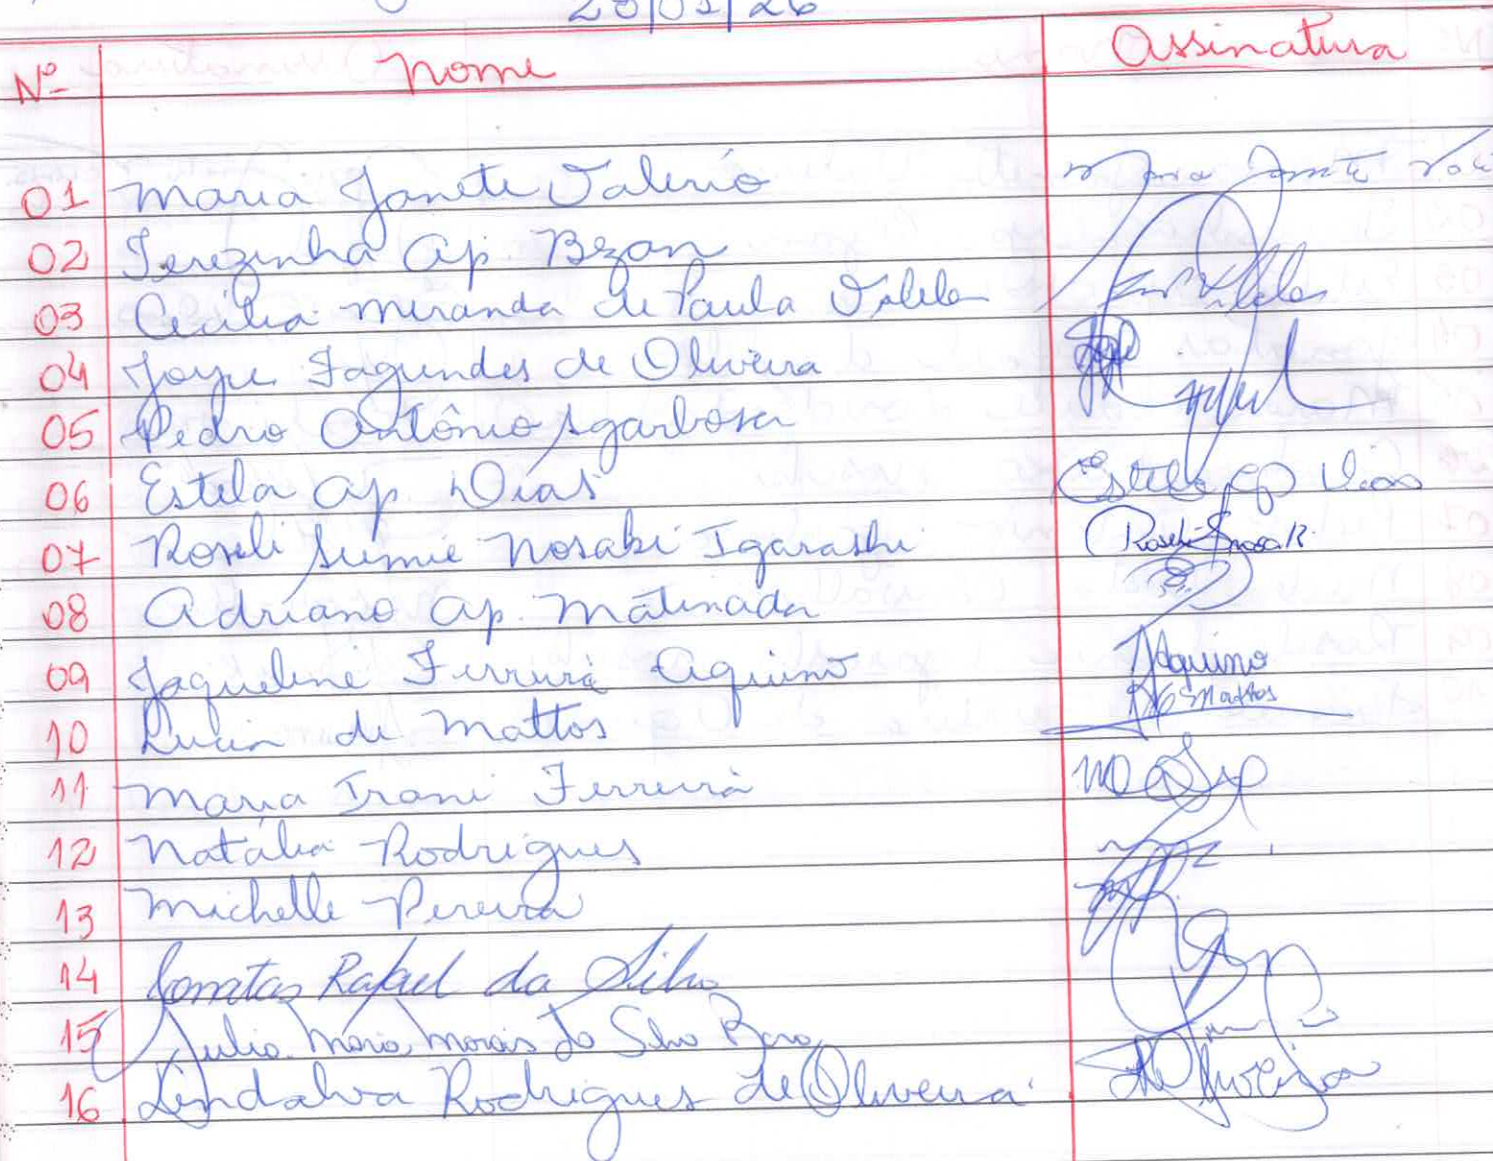 Nº Nome Assinatura
01 Maria Janete Valério Maria Janete
02 Terezinha Ap. Bezan
03 Cecilia Miranda de Paula
04 Joyce Fagundes de Oliveira
05 Pedro Antônio Sgarbosa
06 Estela Ap. Dias Estela Ap Dias
07 Roseli Sumie Nosaki Igarashi Roseli
08 Adriano Ap. Matinada
09 Jaqueline Ferreira Aquino JAquino
10 Lucia de Mattos Mattos
11 Maria Irani Ferreira
12 Natália Rodrigues
13 Michelle Pereira
14 Jonatas Rafael da Silva
15 Julia Maria Morais da Silva
16 Lindalva Rodrigues de Oliveira